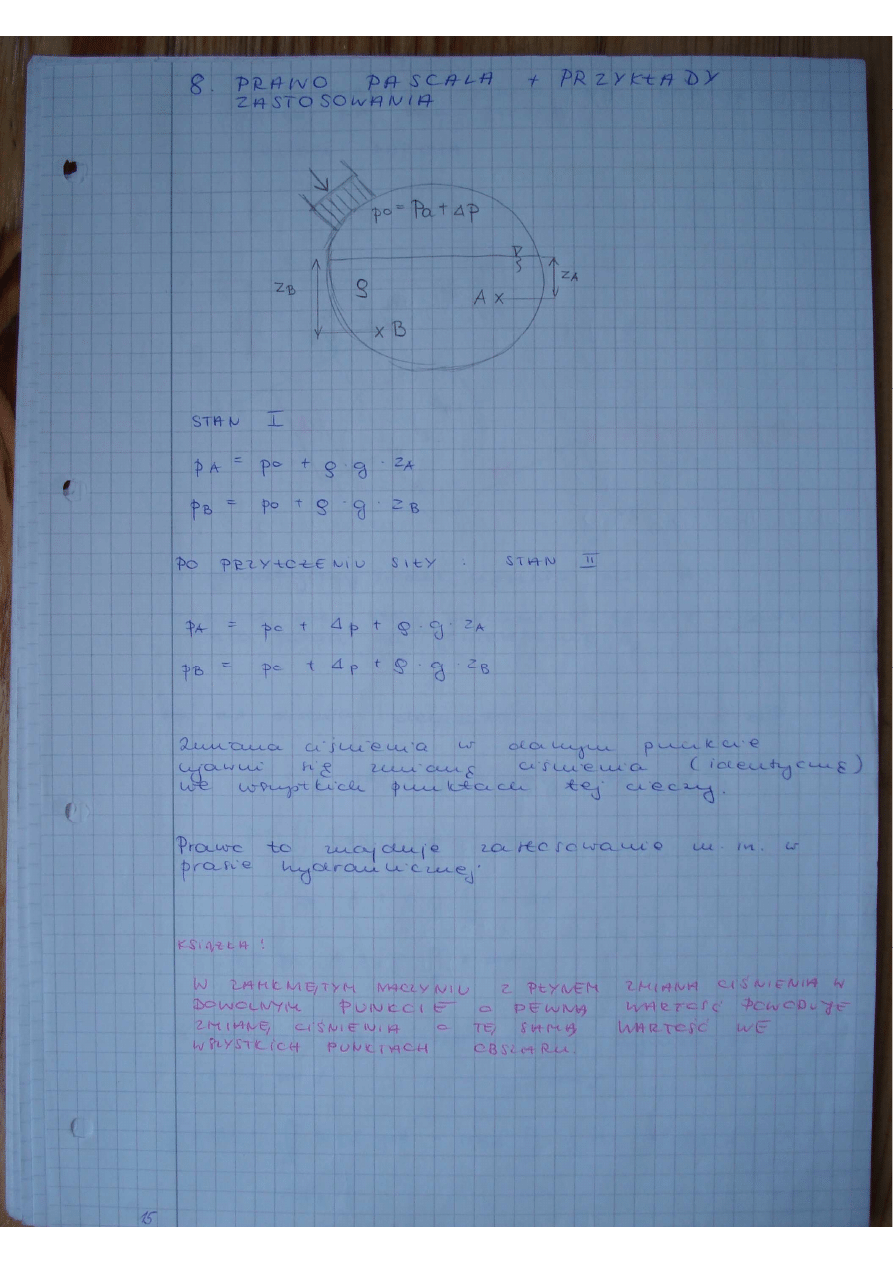 8. PRAWO PASCALA + PRZYKŁADY
ZASTOSOWANIA
po = Pa + ΔP
zB
ρ
A x
zA
x B
STAN I
pA = po + ρ · g · zA
pB = po + ρ · g · zB
PO PRZYŁOŻENIU SIŁY : STAN II
pA = po + Δp + ρ · g · zA
pB = po + Δp + ρ · g · zB
Zmiana ciśnienia w danym punkcie
ujawni się zmianą ciśnienia (identyczną)
we wszystkich punktach tej cieczy.
Prawo to znajduje zastosowanie m. in. w
prasie hydraulicznej.
KSIĄŻKA !
W ZAMKNIĘTYM NACZYNIU Z PŁYNEM ZMIANA CIŚNIENIA W
DOWOLNYM PUNKCIE O PEWNĄ WARTOŚĆ POWODUJE
ZMIANĘ CIŚNIENIA O TĘ SAMĄ WARTOŚĆ WE
WSZYSTKICH PUNKTACH OBSZARU.
15